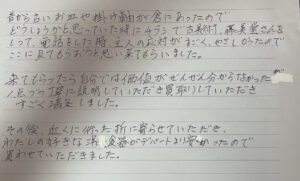 昔から古いお皿や掛け軸が倉にあったので
どうしようかと思っていた時にチラシで古美術、藤美堂さんを
しって、電話をした時、主人の応対がすごく、やさしかったので
ここに見てもらおうと思い来てもらいました。
来てもらったら自分では価値がぜんぜん分からなかった
1点づつ丁寧に説明していただき買取りしていただき
すごく満足しました。
その後、近くに行った折に寄らせていただき、
わたしの好きな 食器がデパートより安かったので
買わせていただきました。